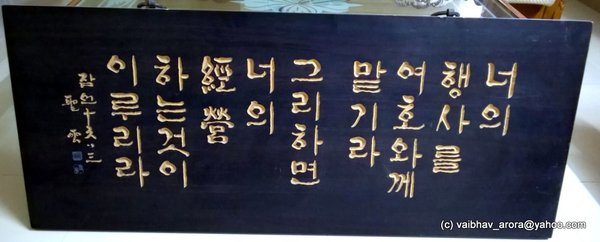 너의
행사를
여호와께
맡기라
그리하면
너의
經營
하는것이
이루리라
잠언十六·三
聖雲
(c) vaibhav_arora@yahoo.com